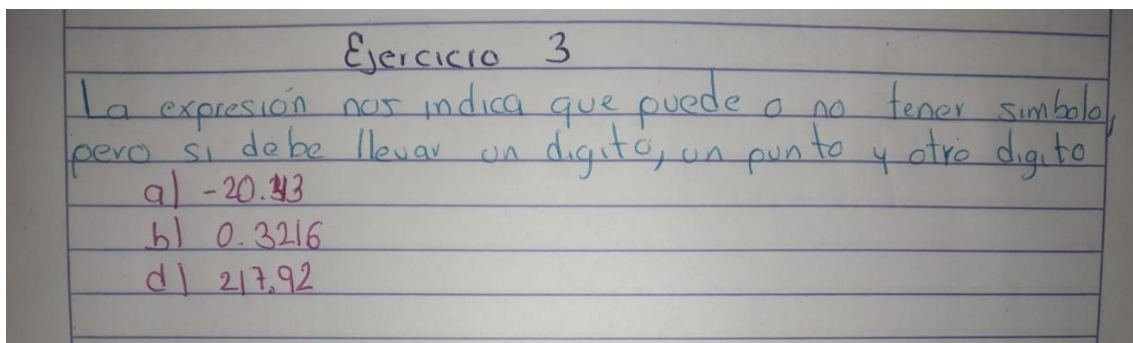 Ejercicio 3
La expresión nos indica que puede o no tener simbolo,
pero si debe llevar un digito, un punto y otro digito
a)
b) 0.3216
d) 217.92